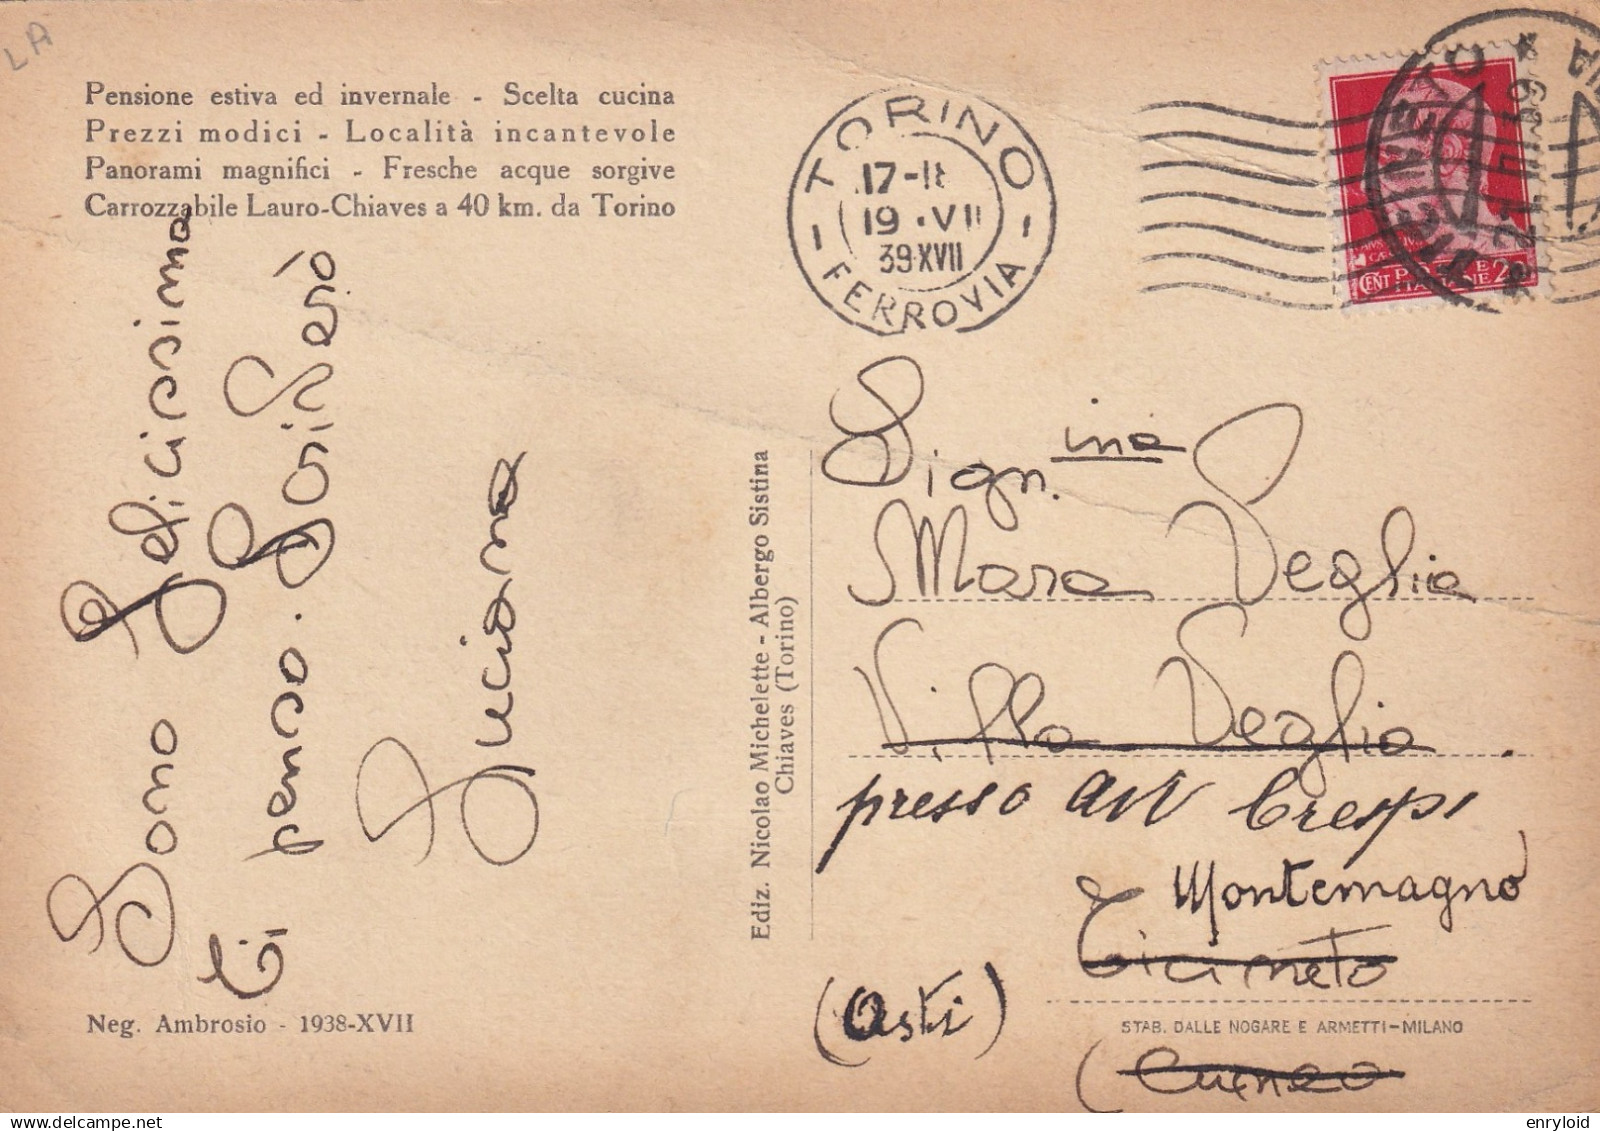 LA
Pensione estiva ed invernale - Scelta cucina
Prezzi modici - Località incantevole
Panorami magnifici - Fresche acque sorgive
Carrozzabile Lauro-Chiaves a 40 km. da Torino
TORINO
17-18
19 .VII
39XVII
FERROVIA
CENT
POSTE
ITALIANE 20
Sono felicissima
Ci penso. Scriverò
Luciana
Ediz. Nicolao Michelette - Albergo Sistina
Chiaves (Torino)
Sign.ina
Mara Veglia
Villa Veglia
presso avv Crespi
Montemagno
Cicineto
(Asti)
(Cuneo
Neg. Ambrosio - 1938-XVII
STAB. DALLE NOGARE E ARMETTI-MILANO
enryloid
delcampe.net